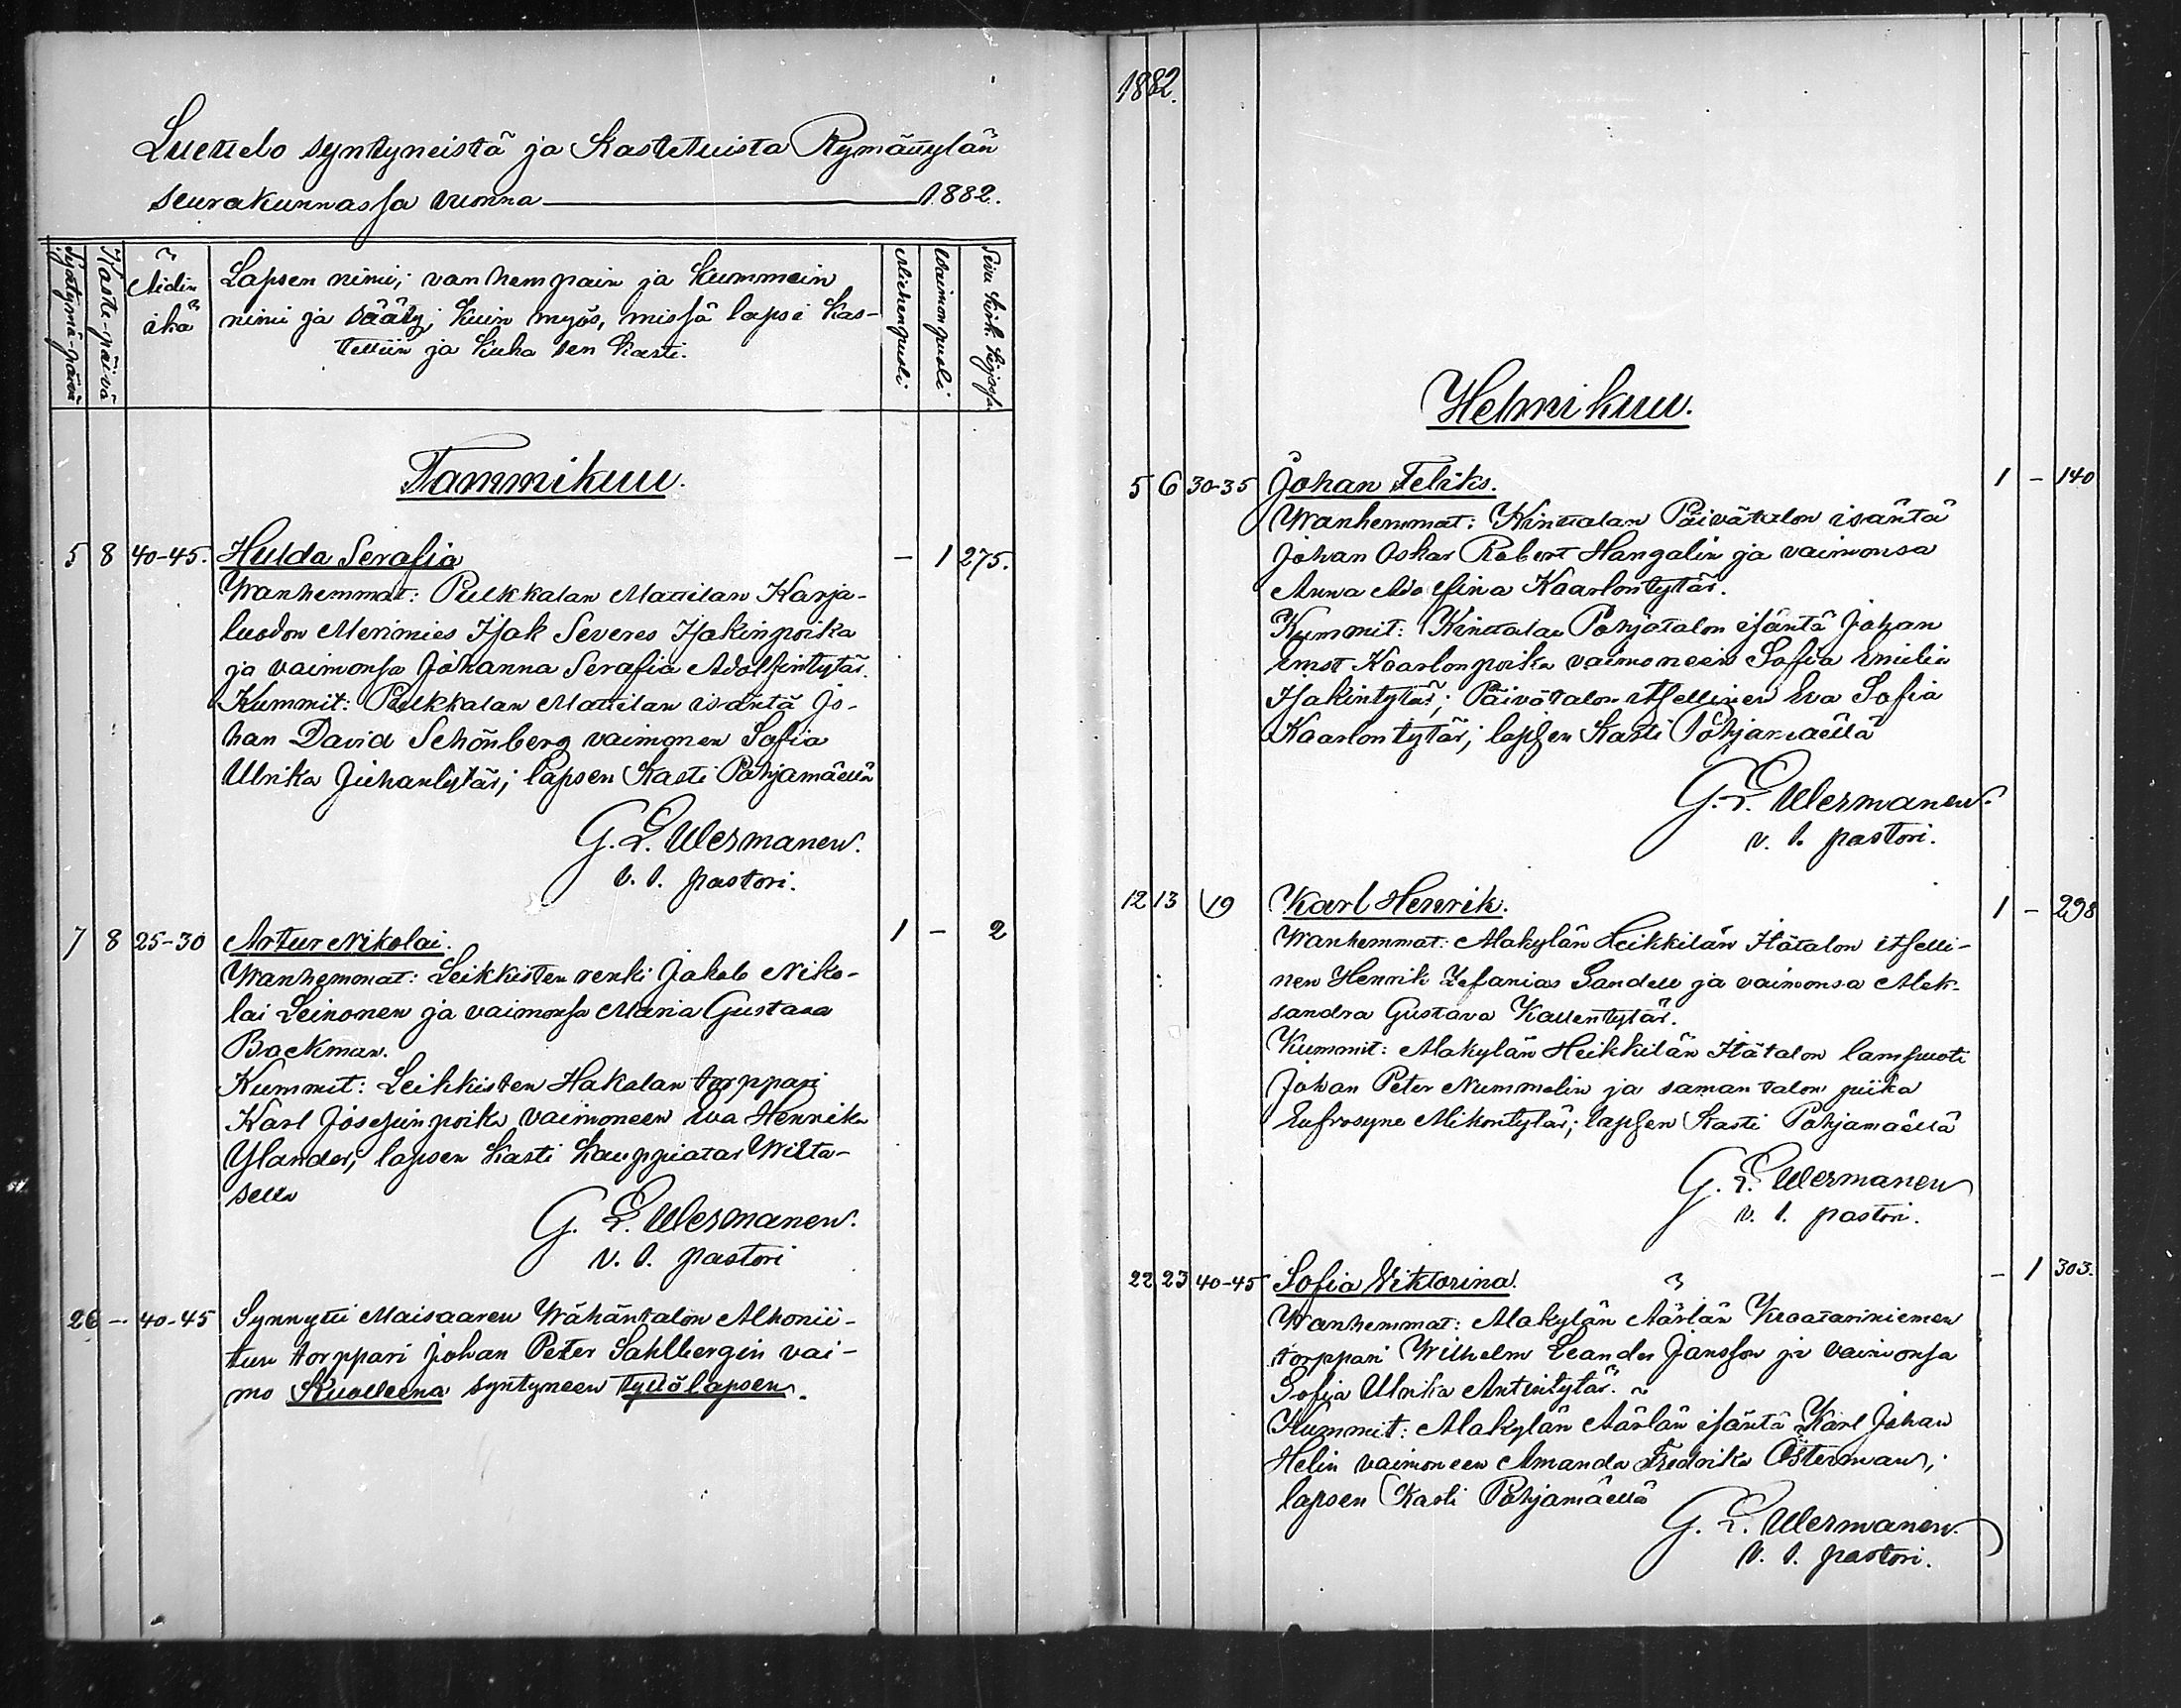 Luettelo syntyneistä ja Kastetuista Rymättylän
seurakunnassa vuonna 1882.
Syntymä-päivä
Kaste-päivä
Äidin ikä
Lapsen nimi; vanhempain ja Kummein
nimi ja sääty; kuin myös, missä lapsi kas-
tettiin ja kuka sen kasti.
Miehenpuoli
Waimonpuoli
Sivu kirk. kirjassa
Tammikuu.
5 8 40-45. Hulda Serafia - 1 275.
Wanhemmat: Pulkkalan Mattilan Karja-
luodon Merimies Isak Severes Isakinpoika
ja vaimonsa Johanna Serafia Adolfintytär.
Kummit: Pulkkalan Mattilan isäntä Jo-
han David Schönberg vaimonen Sofia
Ulrika Juhantytär; lapsen Kasti Pohjamäellä
G. L. Wermanen.
v. t. pastori.
7 8 25-30 Artur Nikolai. 1 - 2
Wanhemmat: Leikkisten renki Jakob Niko-
lai Leinonen ja vaimonsa Maria Gustava
Backman.
Kummit: Leikkisten Hakalan torppari
Karl Josefinpoika vaimoneen Eva Henrika
Ylander; lapsen Kasti Kauppiatar Wilta-
sella
G. L. Wermanen.
v. t. pastori
26 - 40-45 Synnytti Maisaaren Wähäntalon Alhonii-
tun torppari Johan Peter Sahlbergin vai-
mo Kuolleena syntyneen tyttölapsen.
1882.
Helmikuu.
5 6 30-35 Johan Feliks. 1 - 140
Wanhemmat: Kinttalan Päivätalon isäntä
Johan Oskar Robert Hangelin ja vaimonsa
Anna Adolfina Kaarlontytär.
Kummit: Kinttalan Pohjatalon isäntä Johan
Ernst Kaarlonpoika vaimoneen Soffia Emilia
Isakintytär; Päivätalon itsellinen Eva Sofia
Kaarlontytär; lapsen Kasti Pohjamäellä
G. L. Wermanen.
v. t. pastori.
12 13 19 Karl Henrik. 1 - 298
Wanhemmat: Alakylän Heikkilän Itätalon itselli-
nen Henrik Zefanias Sandell ja vaimonsa Alek-
sandra Gustava Kallentytär.
Kummit: Alakylän Heikkilän Itätalon lampuoti
Johan Peter Nummelin ja saman talon piika
Eufrosyne Mikontytär; lapsen Kasti Pohjamäellä
G. L. Wermanen
v. t. pastori.
22 23 40-45 Sofia Viktorina. - 1 303.
Wanhemmat: Alakylän Äärlän
torppari Wilhelm Leander Jansson ja vaimonsa
Sofia Ulrika Antintytär.
Kummit: Alakylän Äärlän isäntä Karl Johan
Helin vaimoneen Amanda Fredrika Österman;
lapsen Kasti Pohjamäellä
G. L. Wermanen.
v. t. pastori.